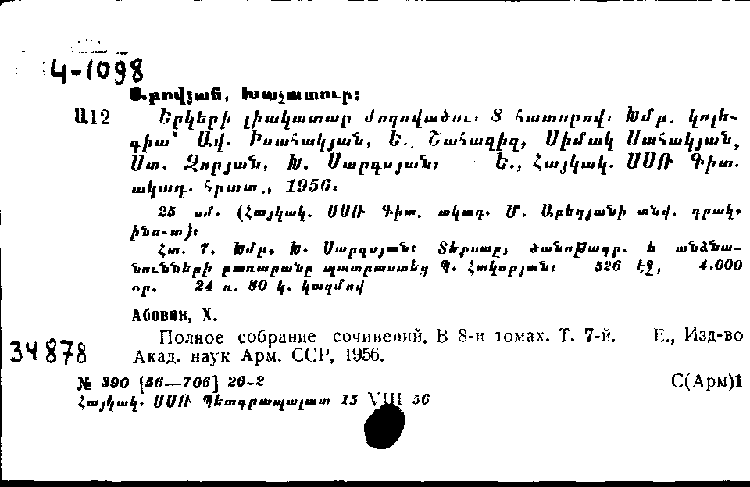 4-1098
Աբովյան, Խաչատուր։
Ա12 Երկերի լիակատար ժողովածու։ 8 հատորով։ Խմբ. կոլե-
գիա՝ Ավ. Իսահակյան, Ե. Շահազիզ, Սիմակ Սահակյան,
Ստ. Զորյան, Խ. Սարգսյան։ Ե., Հայկակ. ՍՍՌ Գիտ.
ակադ. հրատ., 1956։
25 սմ. (Հայկակ. ՍՍՌ Գիտ. ակադ. Մ. Աբեղյանի անվ. գրակ.
ինս-տ)։
Հտ. 7. Խմբ. Խ. Սարգսյան։ Տեքստը, ծանոթագր. և անձնա-
նունների բառարանը պատրաստեց Պ. Հակոբյան։ 526 էջ, 4.000
օր. 24 ռ. 80 կ. կազմով
Абовян, Х.
Полное собрание сочинений. В 8-и томах. Т. 7-й. Е., Изд-во
34878 Акад. наук Арм. ССР, 1956.
№ 390 [56—706] 26-2 С(Арм)1
Հայկակ. ՍՍՌ Պետգրապալատ 15 VIII 56